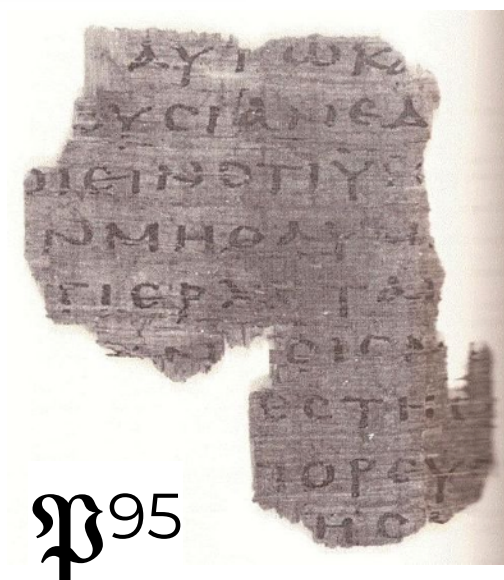 ΑΥΤΩΚ
ΥϹΙΑΝΕΔ
ΙΕΙΝΟΤΙΥ
ΝΜΗΘΑΥ
ΤΙΕΡΧΕΤΑ
ΟΙϹ
ΕϹΤΗ
ΠΟΡΕΥ
ΗϹ
𝔓95